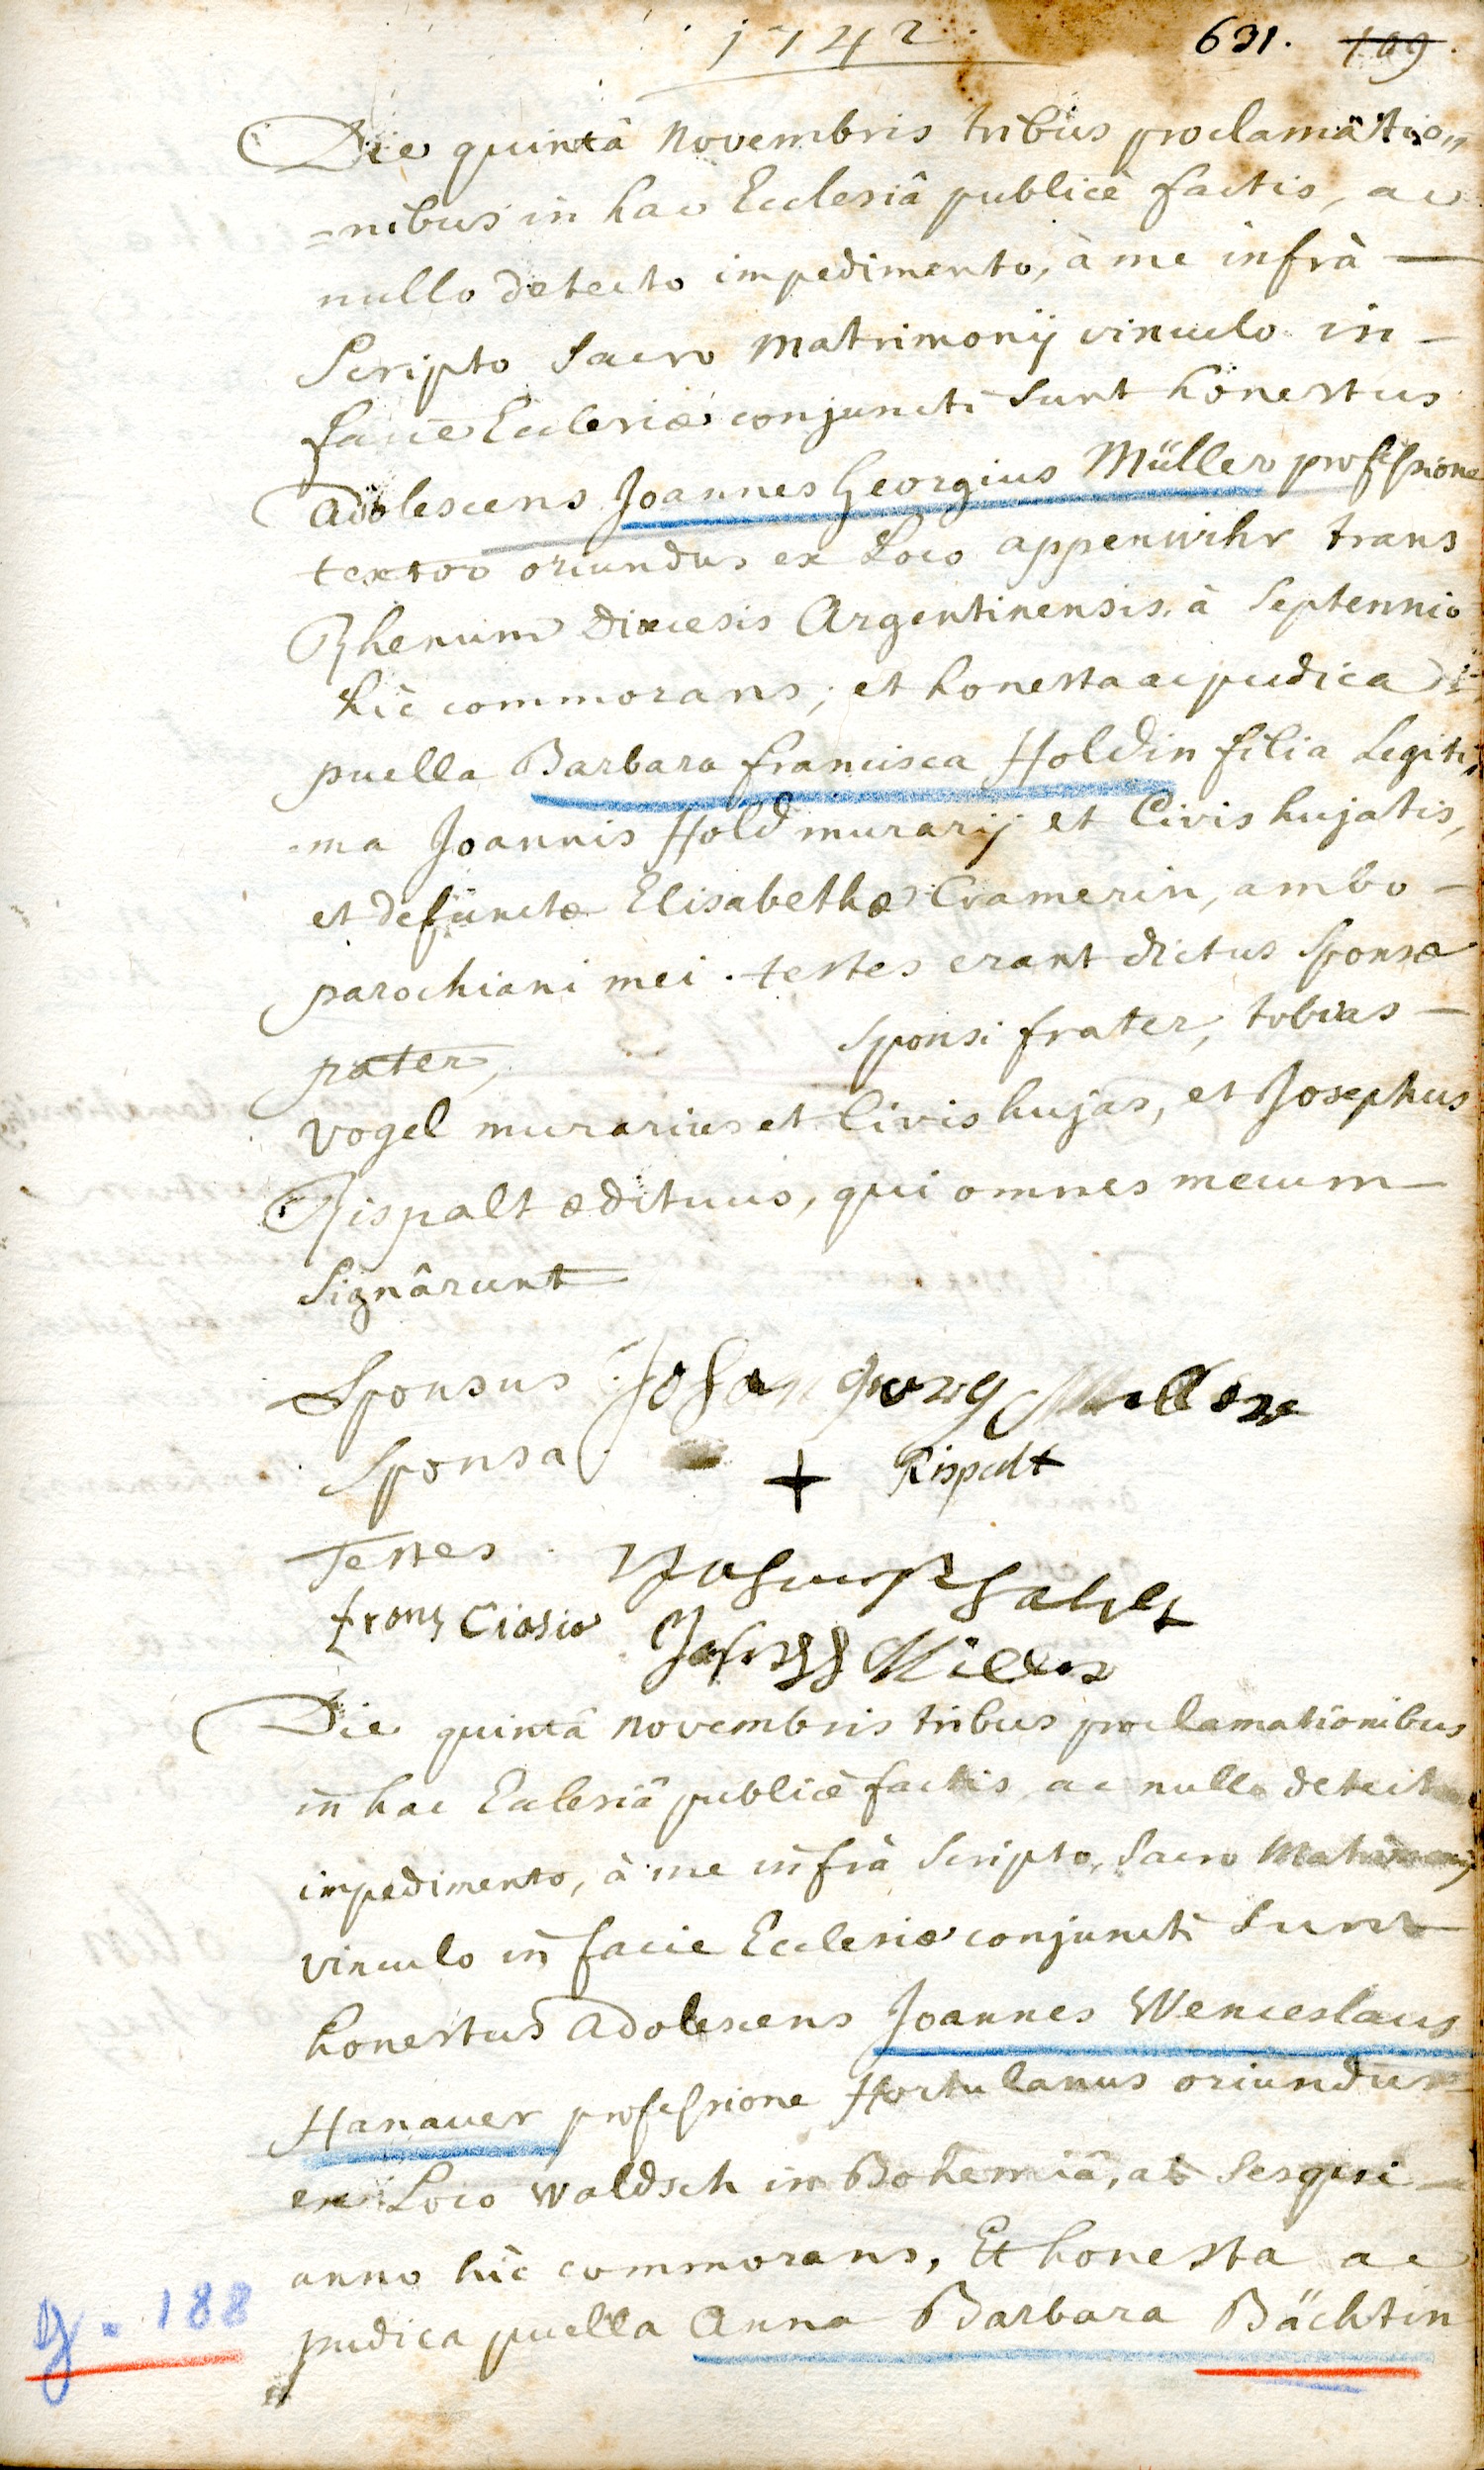 1742. 631. 109.
Die quintâ Novembris tribus proclamatio„
=nibus in hac Ecclesiâ publicè factis, ac
nullo detecto impedimento, à me infrà —
Scripto Sacro Matrimonij vinculo in –
facie Ecclesiæ conjuncti Sunt honestus
adolescens Joannes Georgius Müller professione
textor oriundus ex Loco appenwihr trans
Rhenum Diœcesis Argentinensis à Septennio
hîc commorans; et honesta ac pudica
puella Barbara francisca Holdin filia Legiti„
-ma Joannis Hold murarij et Civis hujatis,
et defunctæ Elisabethæ Cramerin, ambo –
parochiani mei. testes erant dictus Sponsæ
pater, Sponsi frater, tobias –
vogel murarius et Civis hujas, et Josephus
Rispalt ædituus, qui omnes mecum –
Signârunt
Sponsus Johan georg Muller
Sponsa + Rispalt
Testes
franz
Die quintâ Novembris tribus proclamationibus
in hac Ecclesiâ publicè factis ac nullo detecto
impedimento, à me infrà Scripto, Sacro Matrimonij
vinculo in facie Ecclesiæ conjuncti Sunt
honestus adolescens Joannes Wenceslaus
Hanauer professione Hortulanus oriundus
ex Loco Waldsch in Bohemiâ, ab Sesqui –
anno hîc commorans, Et honesta ac
pudica puella Anna Barbara Bächtin
y. 188